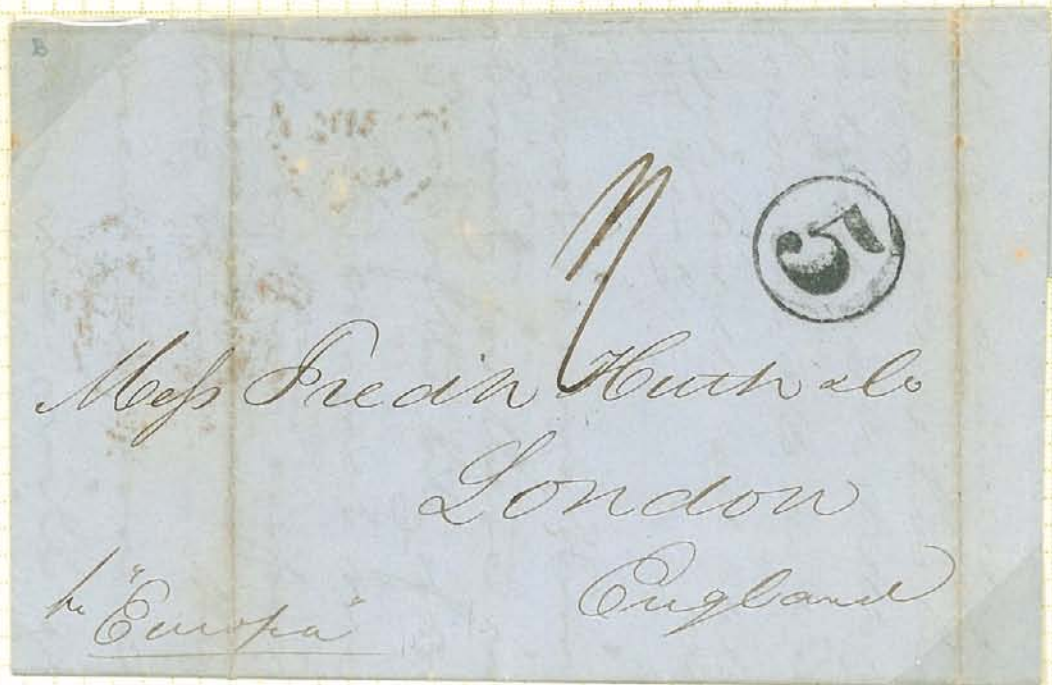 B
5
Mess Fredk Huth & Co
London
England
pr "Europa"